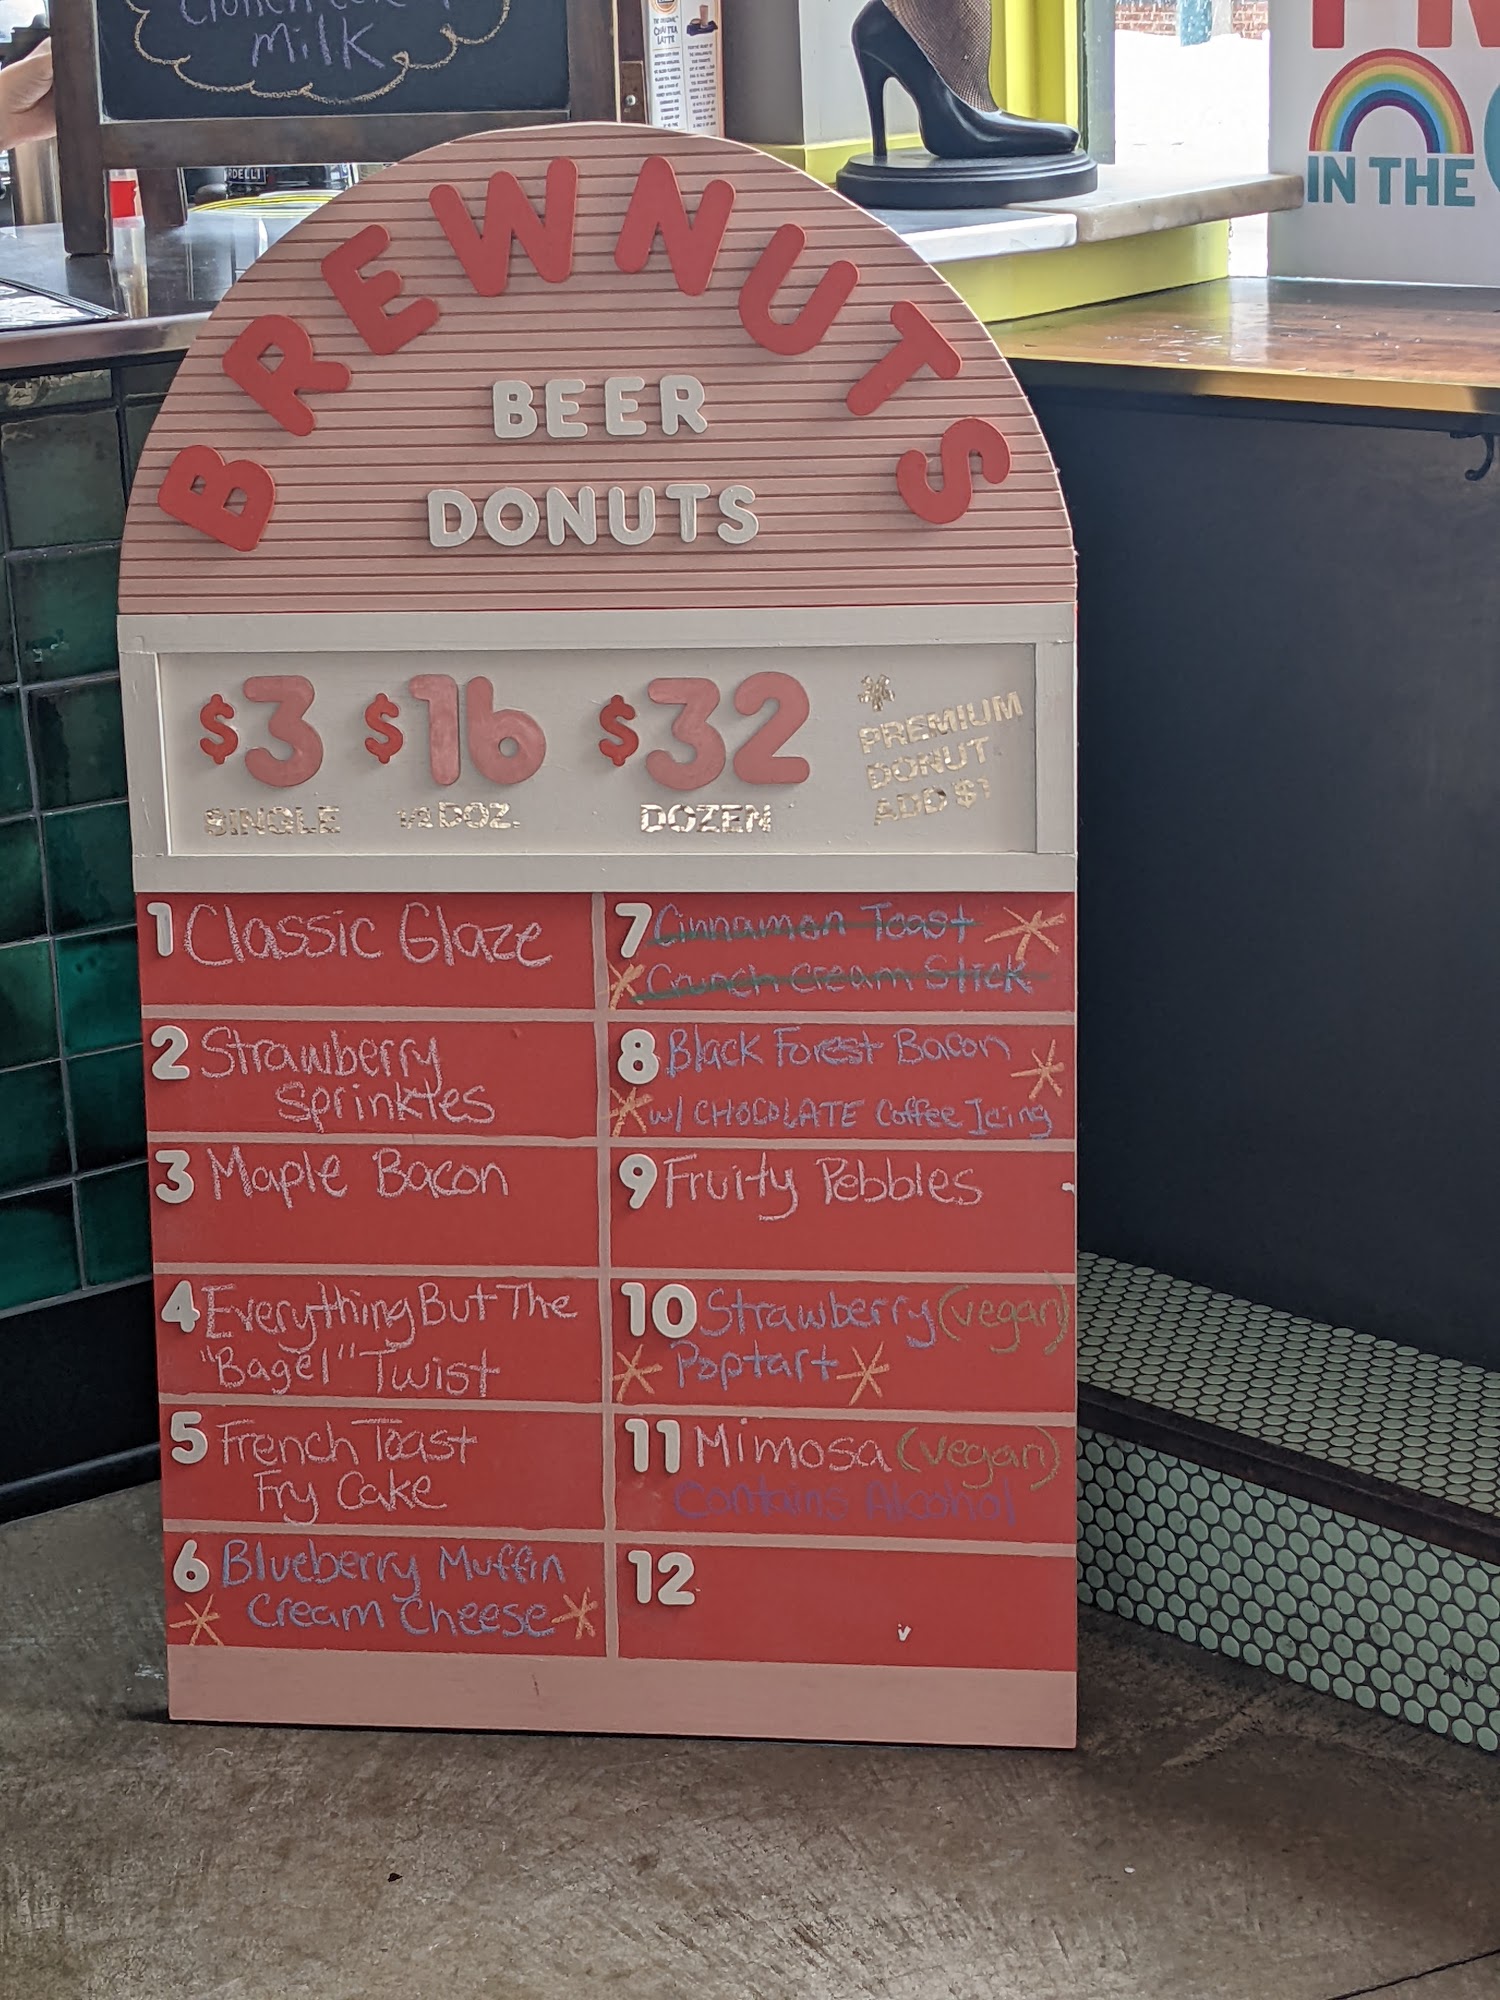 Milk
THE ORIGINAL
CHAI TEA
LATTE
IN THE
BREWNUTS
BEER
DONUTS
$3 $16 $32
SINGLE 1/2 DOZ. DOZEN
*
PREMIUM
DONUT
ADD $1
1 Classic Glaze
2 Strawberry
Sprinkles
3 Maple Bacon
4 Everything But The
"Bagel" Twist
5 French Toast
Fry Cake
6 Blueberry Muffin
* Cream Cheese *
7 Cinnamon Toast *
* Crunch Cream Stick
8 Black Forest Bacon *
* w/ CHOCOLATE Coffee Icing
9 Fruity Pebbles
10 Strawberry (vegan)
* Poptart *
11 Mimosa (vegan)
Contains Alcohol
12